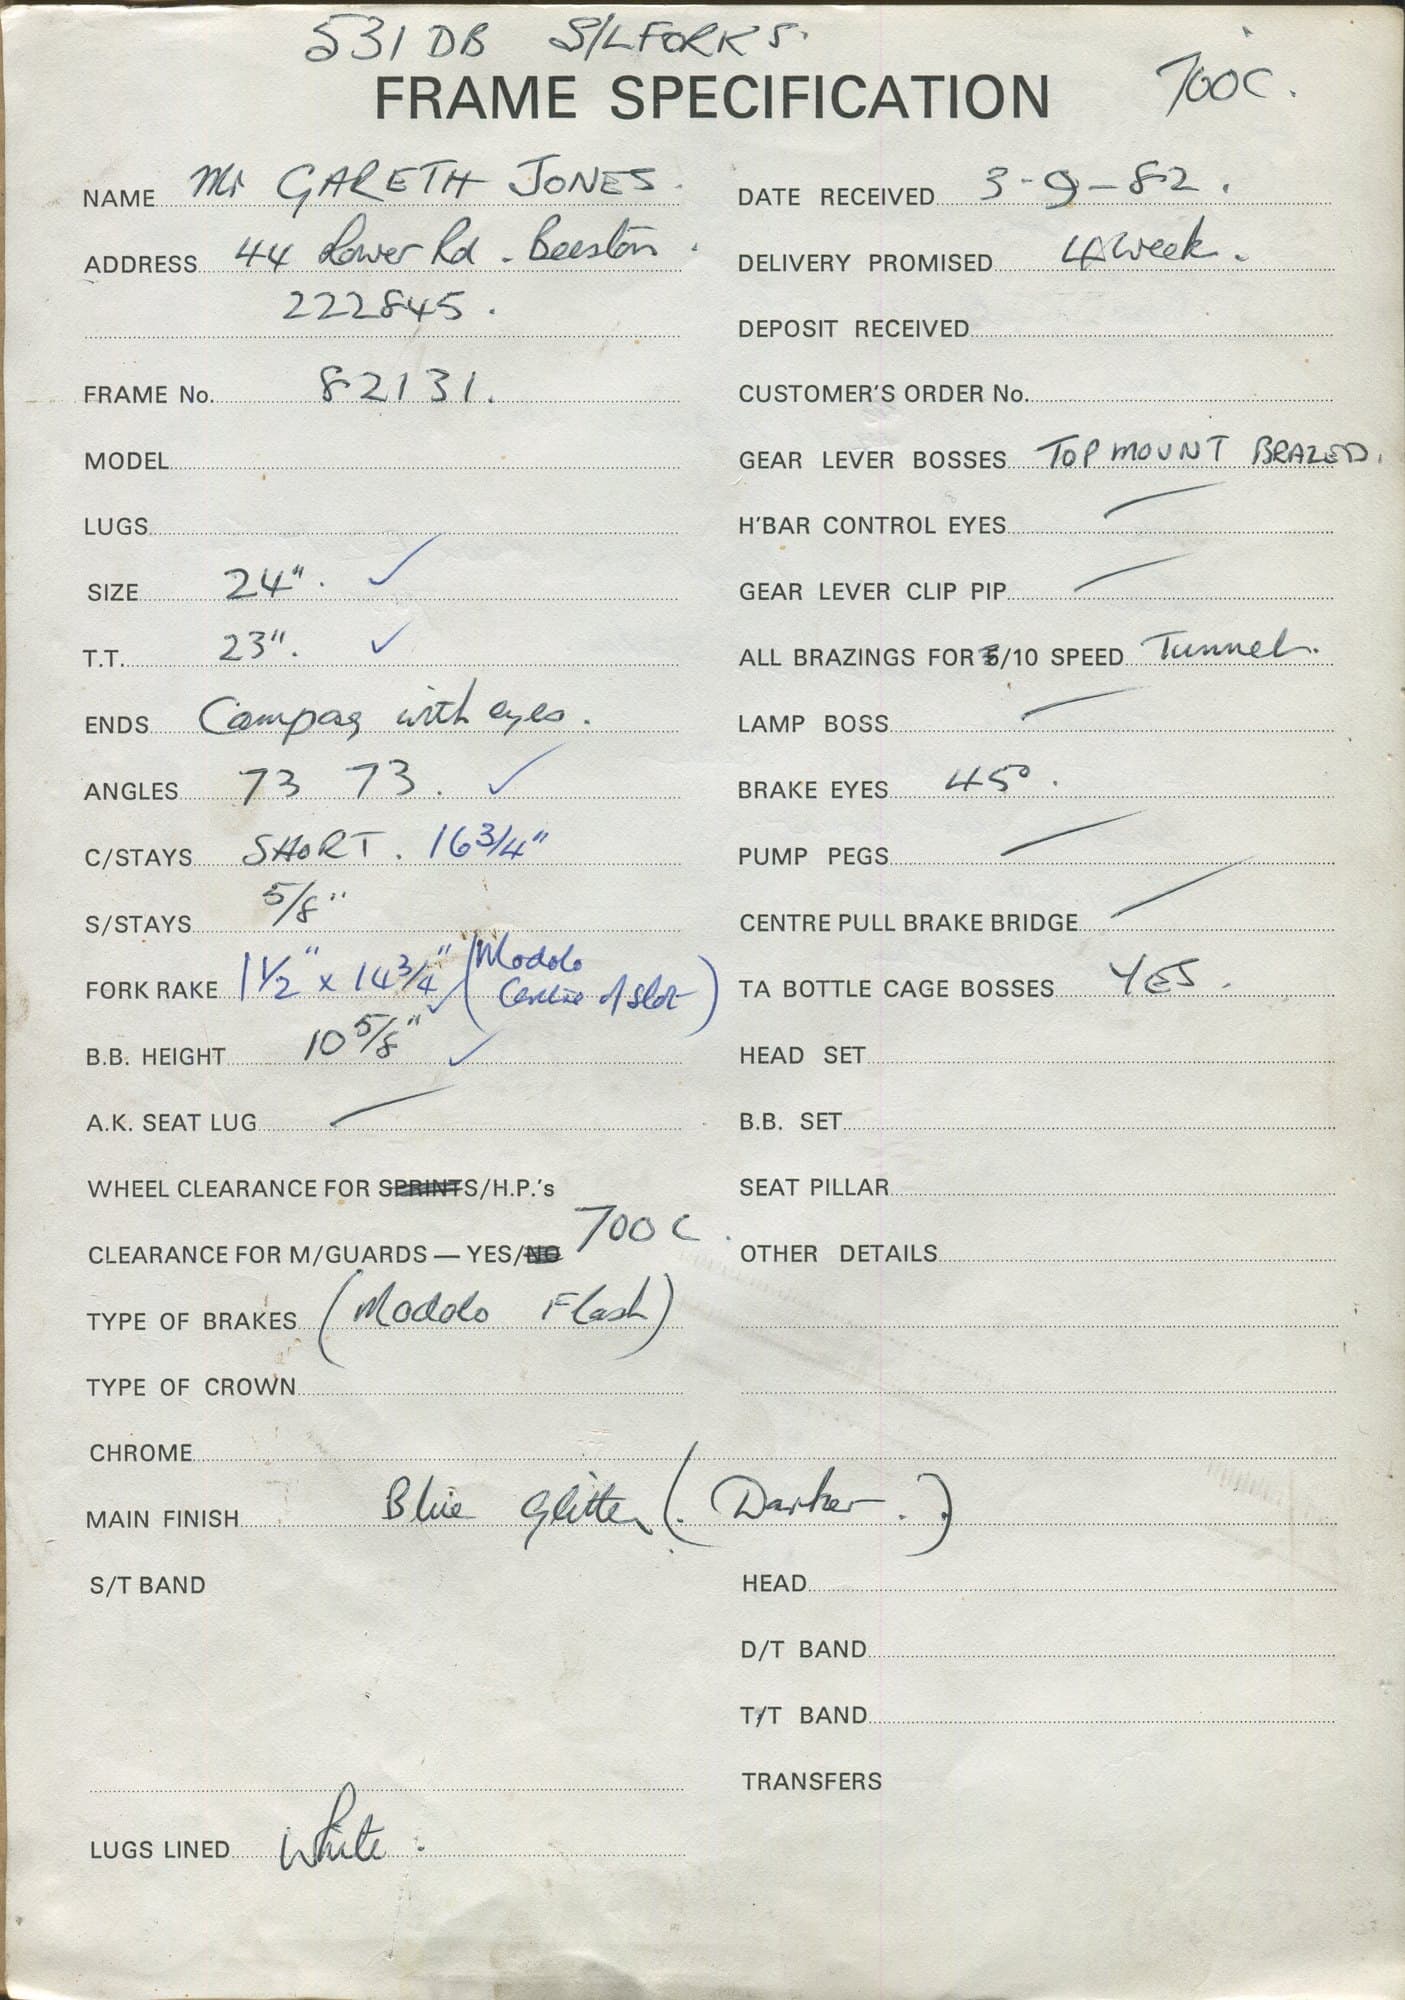 531 DB S/L FORKS.
FRAME SPECIFICATION 700C.
NAME Mr GARETH JONES.
ADDRESS 44 Lower Rd. Beeston.
222845.
FRAME No. 82131.
MODEL
LUGS
SIZE 24". ✓
T.T. 23". ✓
ENDS Campag with eyes.
ANGLES 73 73. ✓
C/STAYS SHORT. 16 3/4"
S/STAYS 5/8"
FORK RAKE 1 1/2" x 14 3/4" ✓ (Modolo
Centre of slot)
B.B. HEIGHT 10 5/8" ✓
A.K. SEAT LUG —
WHEEL CLEARANCE FOR SPRINTS/H.P.'s
CLEARANCE FOR M/GUARDS — YES/NO 700C.
TYPE OF BRAKES (Modolo Flash)
TYPE OF CROWN
CHROME
MAIN FINISH Blue Glitter (Darker.)
S/T BAND
LUGS LINED White.
DATE RECEIVED 3-9-82.
DELIVERY PROMISED 4 Week.
DEPOSIT RECEIVED
CUSTOMER'S ORDER No.
GEAR LEVER BOSSES TOP MOUNT BRAZED.
H'BAR CONTROL EYES —
GEAR LEVER CLIP PIP —
ALL BRAZINGS FOR 5/10 SPEED Tunnel.
LAMP BOSS —
BRAKE EYES 45°.
PUMP PEGS —
CENTRE PULL BRAKE BRIDGE —
TA BOTTLE CAGE BOSSES YES.
HEAD SET
B.B. SET
SEAT PILLAR
OTHER DETAILS
HEAD
D/T BAND
T/T BAND
TRANSFERS